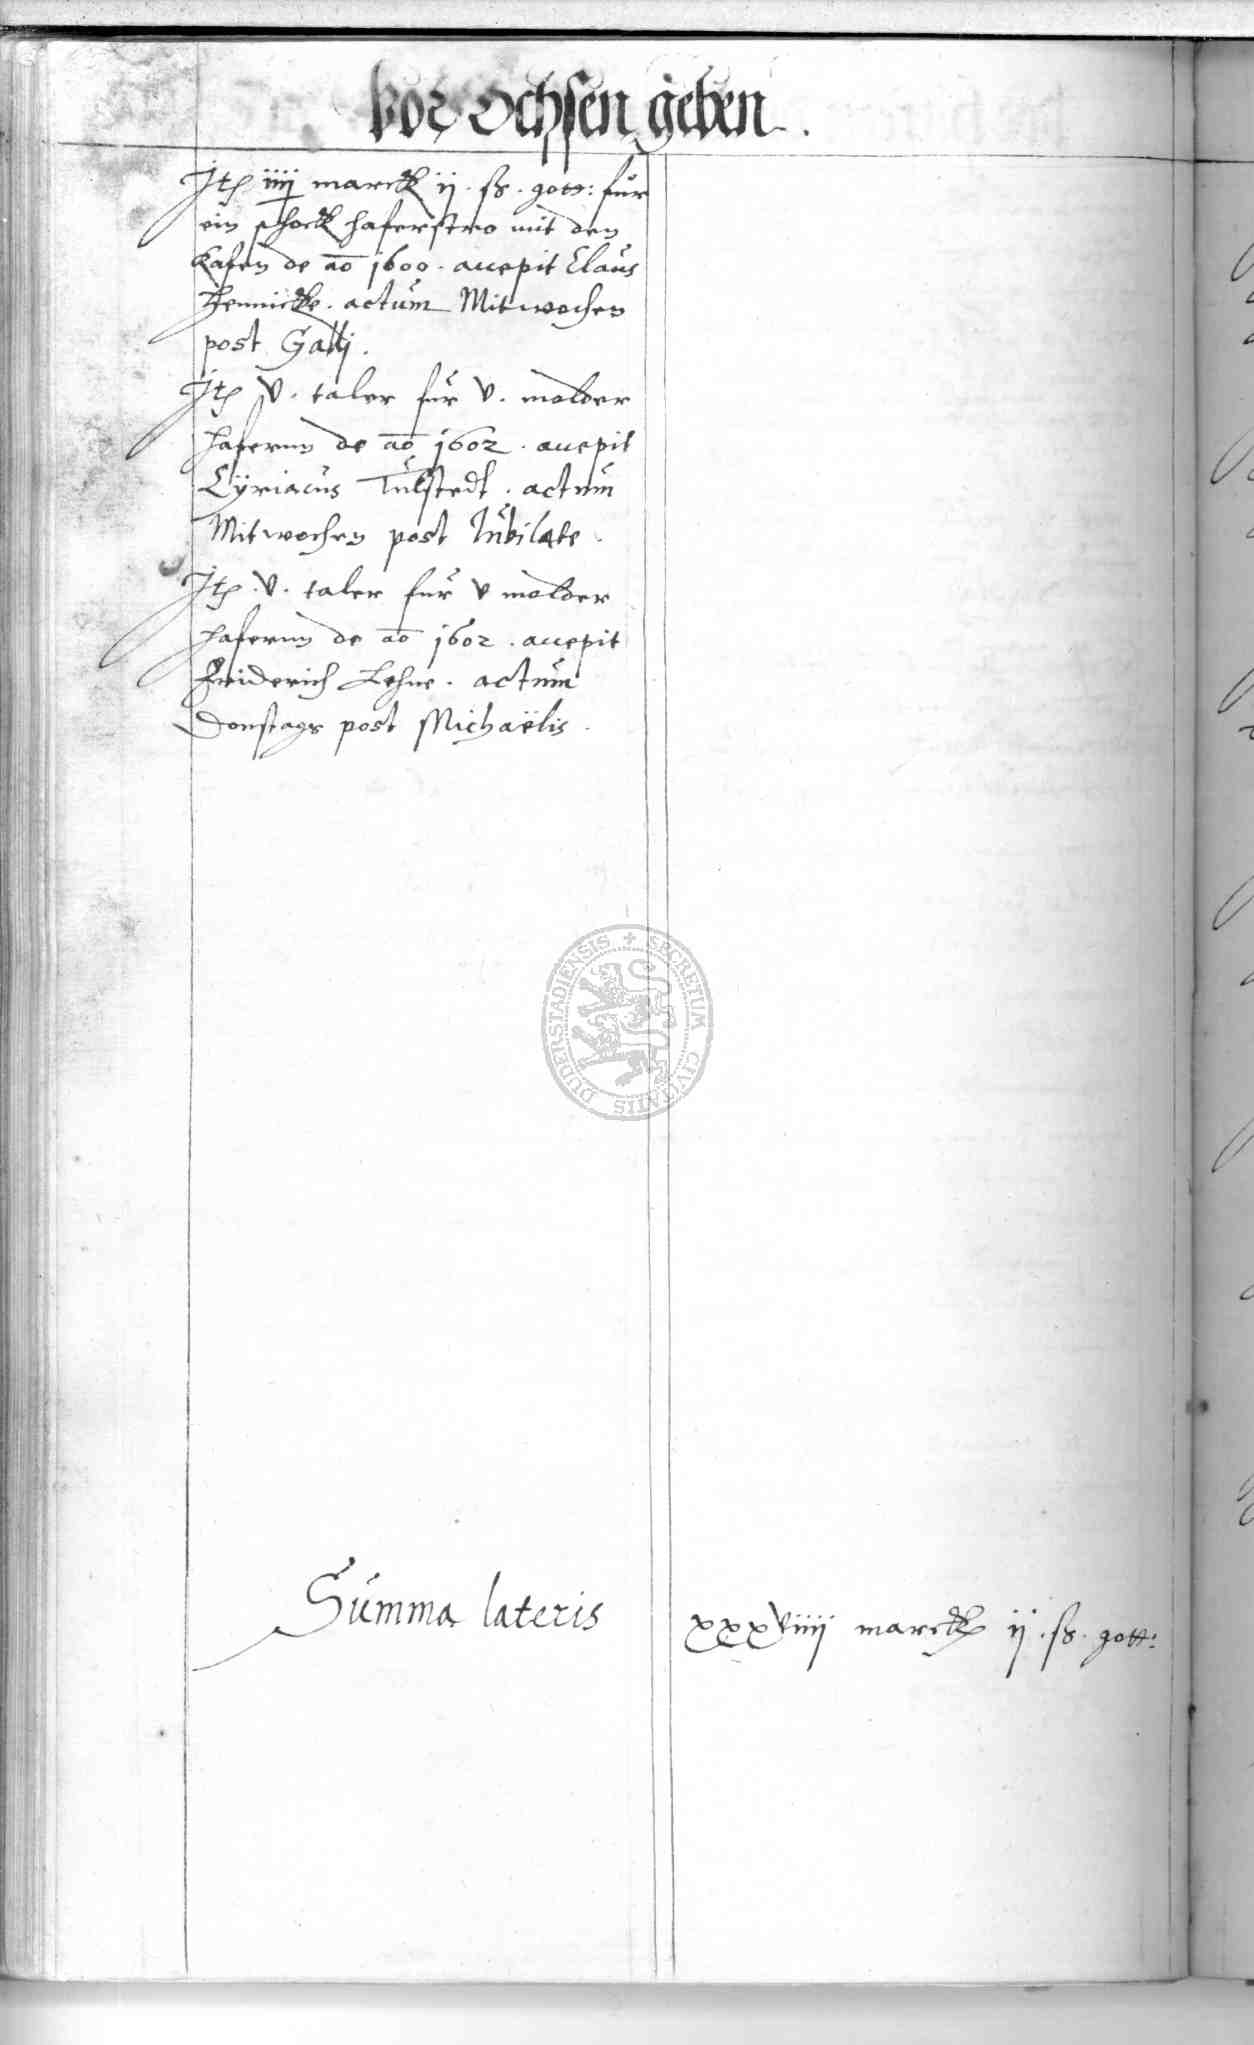 Vor Ochsen geben.
Itē iiij marck ij. ß. gott: für
ein schock haferstro mit den
kafen de ao 1600. accepit Claus
Hennicke. actum Mitwochen
post Galli.
Itē v. taler für v. malder
hafernn de ao 1602. accepit
Cÿriacus Tulstedt. actum
Mitwochen post Iubilate.
Itē. v. taler für v malder
hafernn de ao 1602. accepit
Friderich Lehne. actum
Donstags post Michaëlis.
Summa lateris xxxviiij marck ij. ß. gott:
SECRETUM CIVITATIS DUDERSTADIENSIS